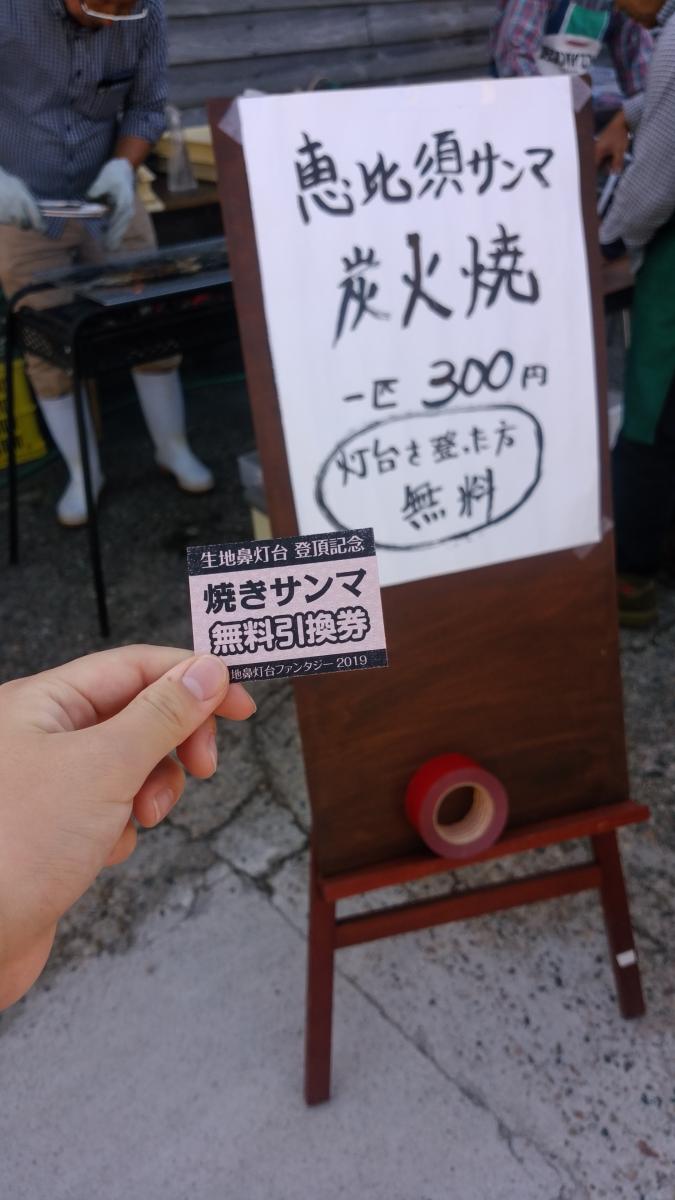 恵比須サンマ
炭火焼
一匹 300円
灯台を登った方
無料
生地鼻灯台 登頂記念
焼きサンマ
無料引換券
地鼻灯台ファンタジー 2019